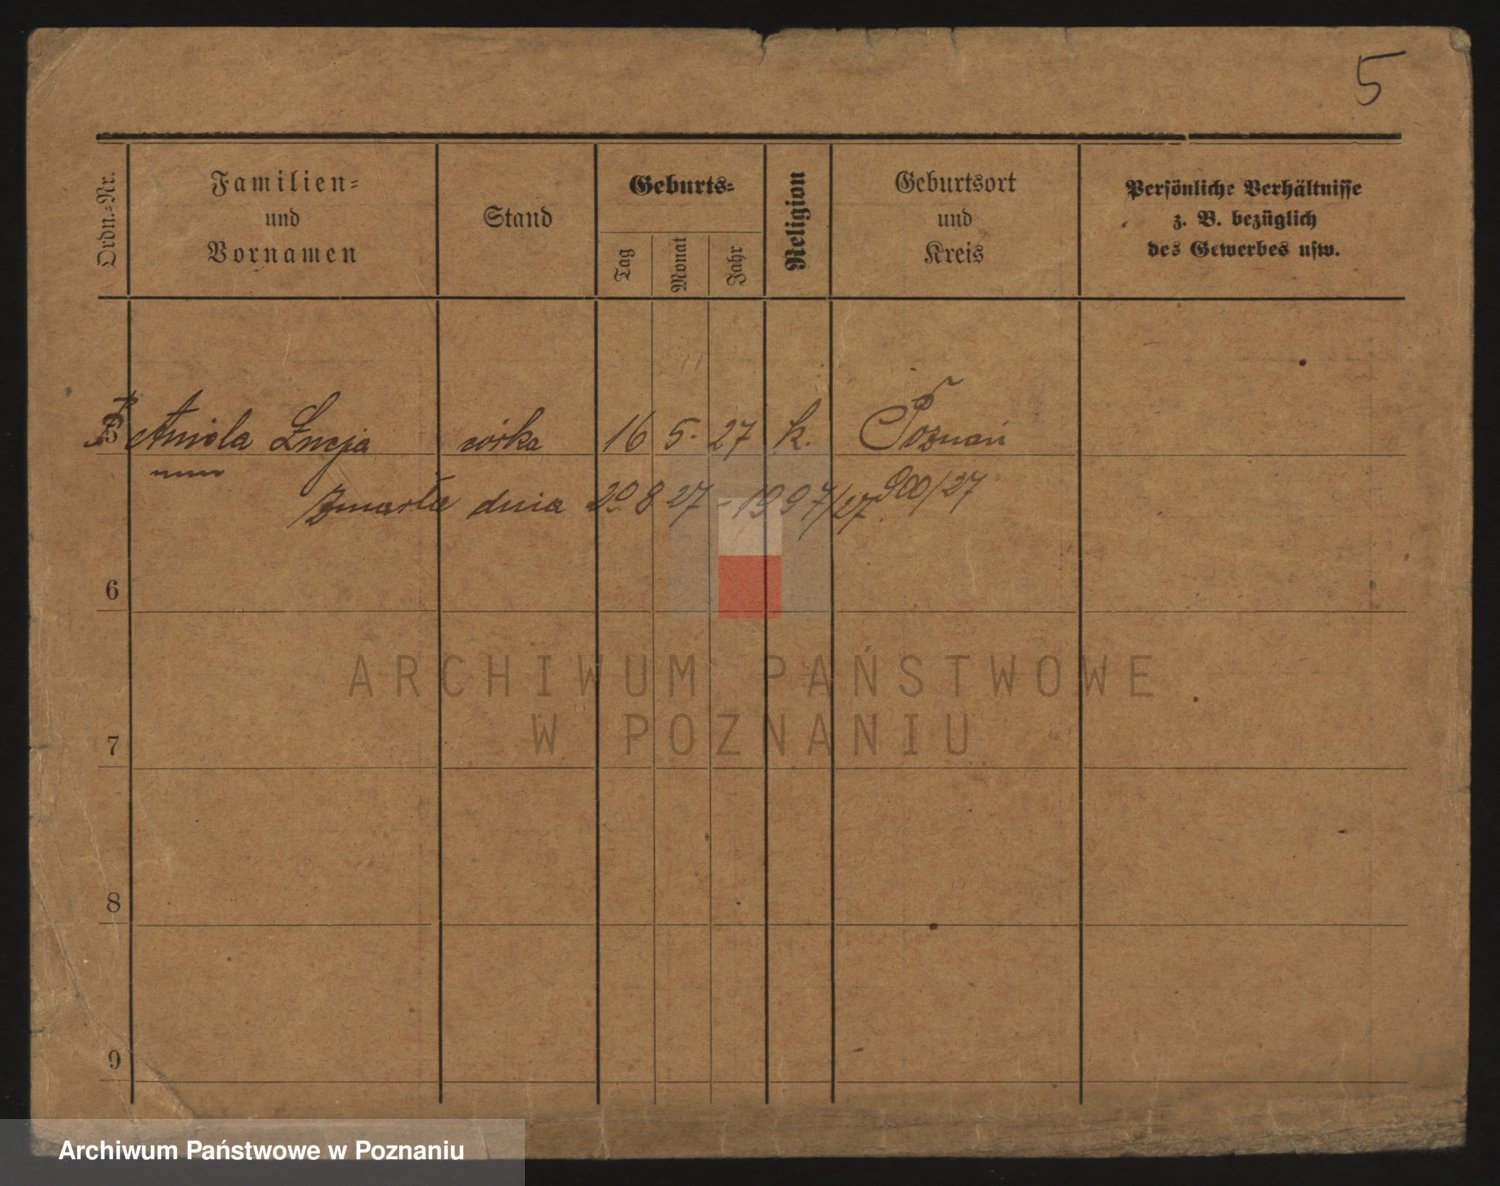 5
Ordn.-Nr.
Familien-
und
Vornamen
Stand
Geburts-
Tag
Monat
Jahr
Religion
Geburtsort
und
Kreis
Persönliche Verhältnisse
z. B. bezüglich
des Gewerbes usw.
5 Aniela Łucja córka 16 5. 27 k. Poznań
Zmarła dnia 20 8 27 - 1997/27 900/27
6
7
8
9
ARCHIWUM PAŃSTWOWE
W POZNANIU
Archiwum Państwowe w Poznaniu